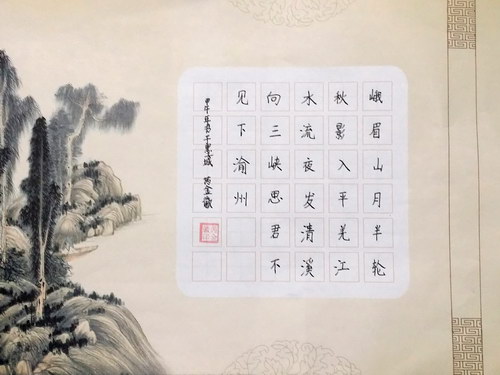 峨眉山月半轮
秋影入平羌江
水流夜发清溪
向三峡思君不
见下渝州
甲午年于惠城